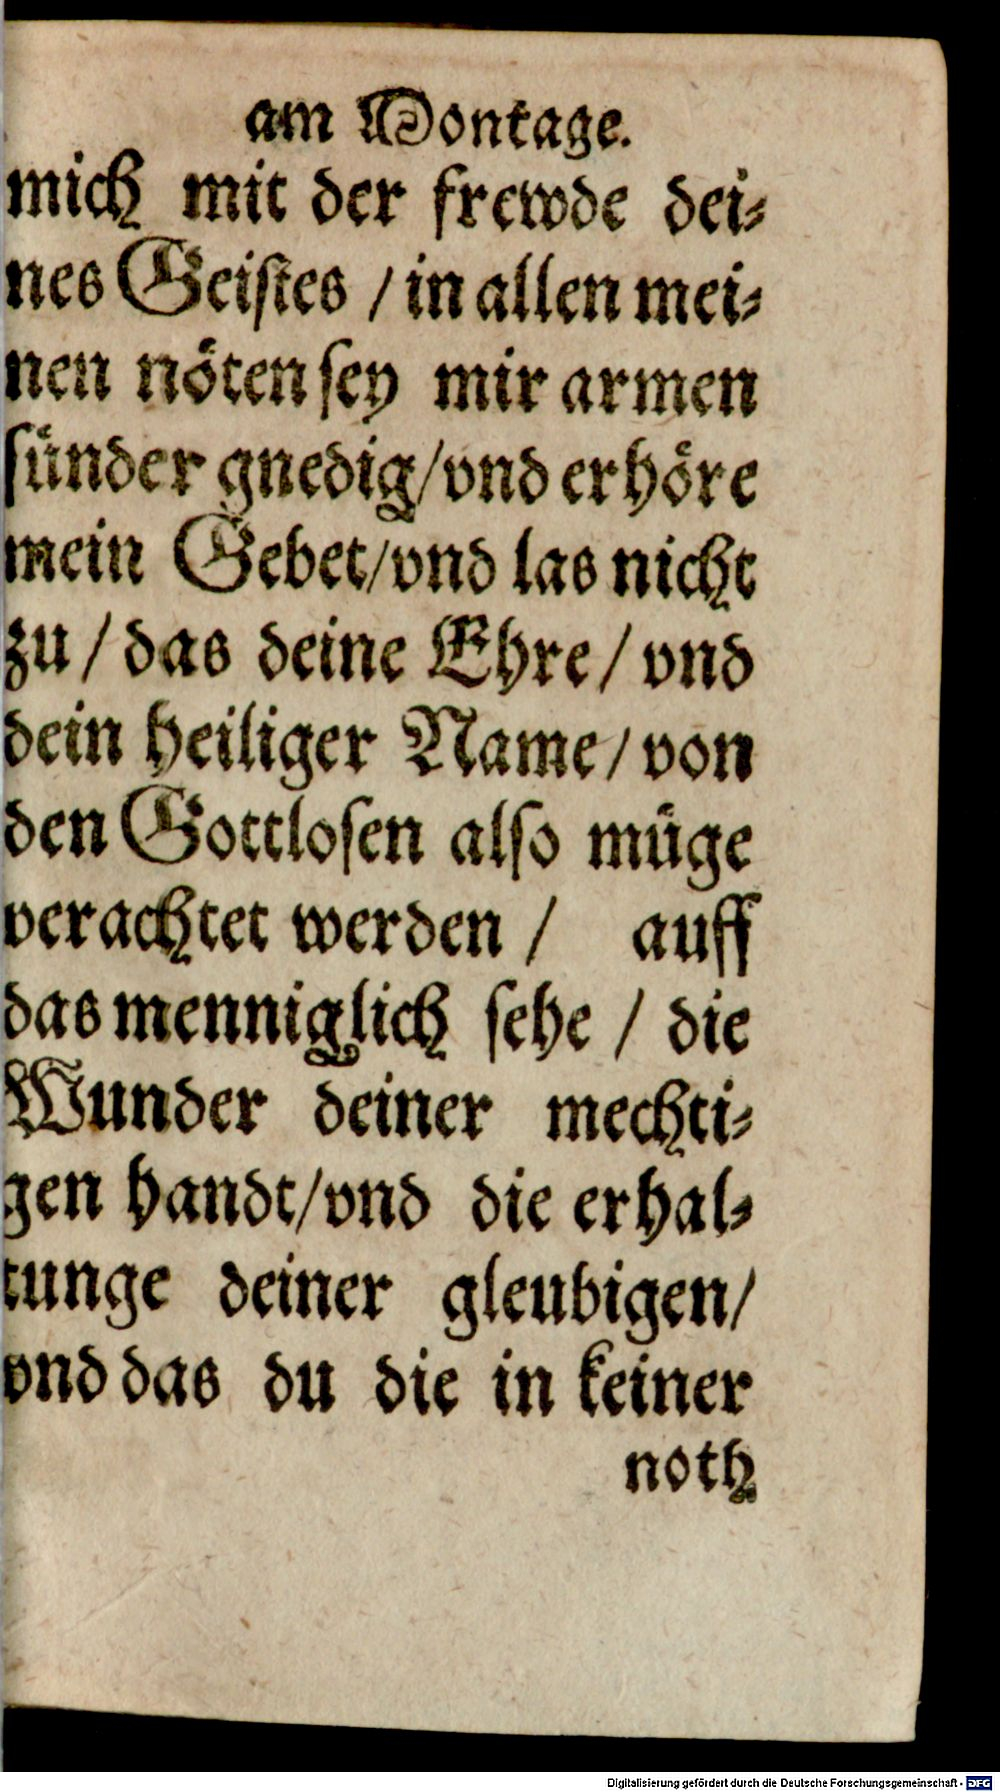 am Montage.
mich mit der frewde dei⸗
nes Geiſtes / in allen mei⸗
nen nöten ſey mir armen
ſünder gnedig / vnd erhöre
mein Gebet / vnd las nicht
zu / das deine Ehre / vnd
dein heiliger Name / von
den Gottloſen alſo müge
verachtet werden / auff
das menniglich ſehe / die
Wunder deiner mechti⸗
gen handt / vnd die erhal⸗
tunge deiner gleubigen /
vnd das du die in keiner
noth
Digitalisierung gefördert durch die Deutsche Forschungsgemeinschaft - DFG